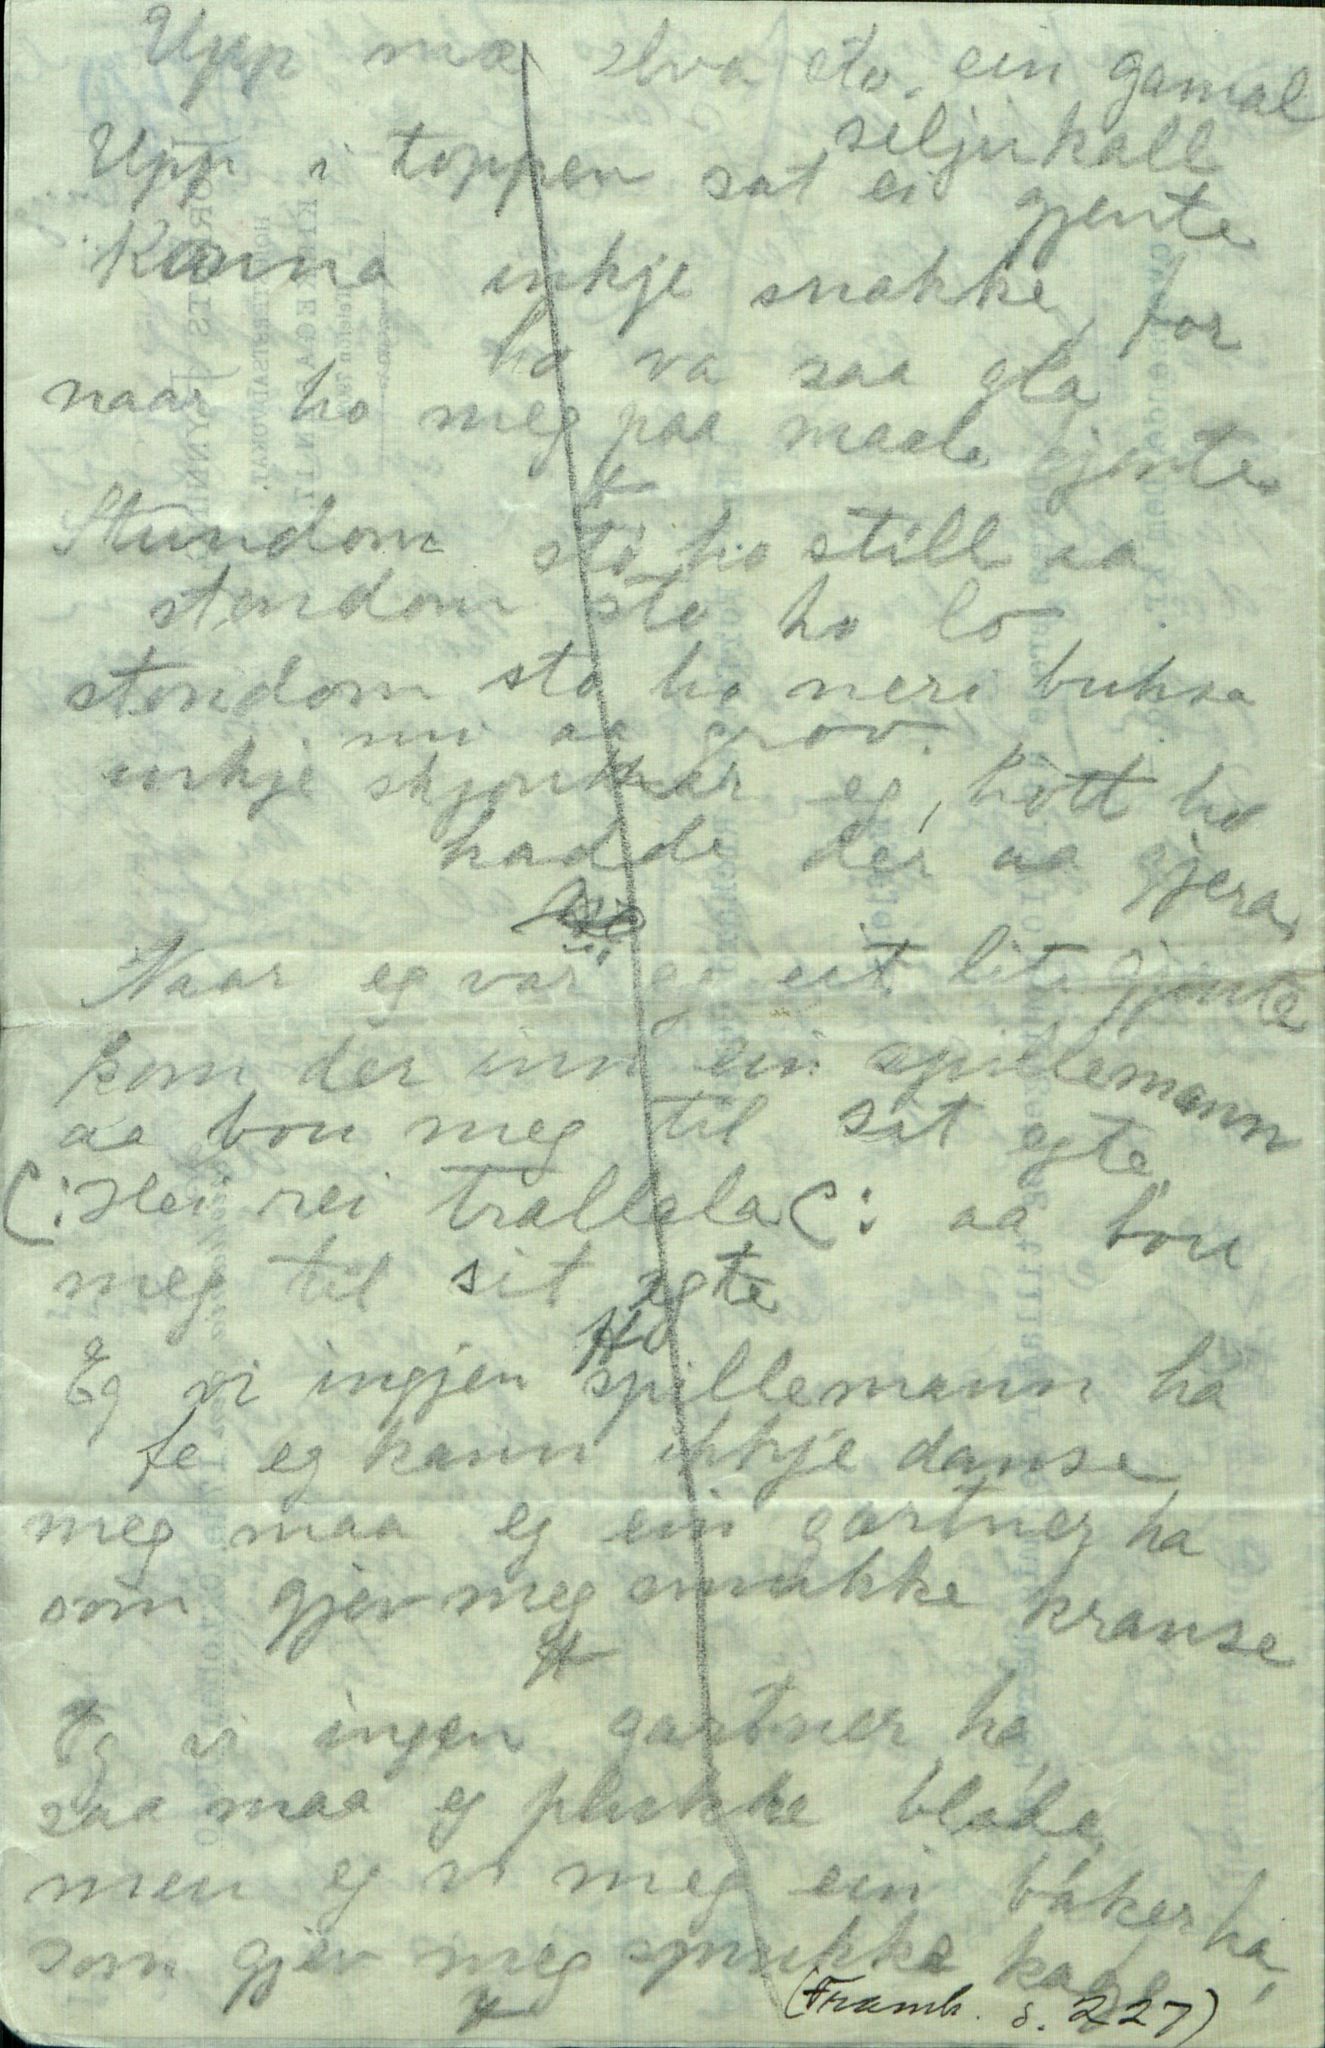 Upp mæ elva sto ein gamal
seljukall
Upp i toppen sat ei gjente
Kanna inkje snakke, for
ho va saa gla
naar ho meg paa maale kjente
Stundom sto ho still aa
stondom sto ho lo
stondom sto ho neri buksa
mi aa grov.
inkje skjønnar eg, kott ho
hadde der aa gjera
Naar eg var eg eit lite gjente
kom der inn ein spillemann
aa bou meg til sit egte
(: Hei rei trallela (: aa bou
meg til sit egte
Eg vi ingjen spillemann ha
fe eg kann ikkje danse
meg maa eg ein gartner ha
som gjev meg smukke kranse
Eg vi ingen gartner ha
saa maa eg plukke blade
men eg vi meg ein baker ha
som gjev meg smukke kage
(Framh. s. 227)